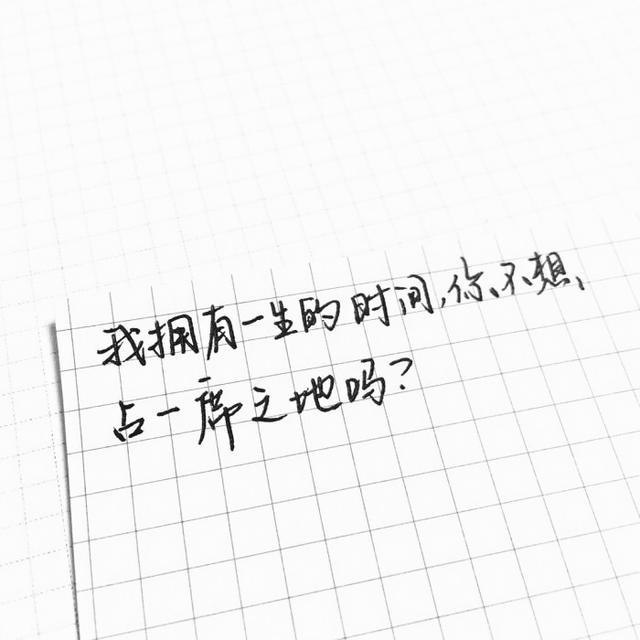 我拥有一生的时间,你不想
占一席之地吗?